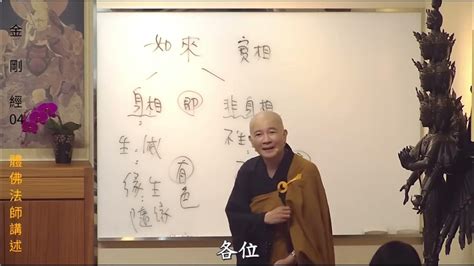 金剛經04
體佛法師講述
如來 實相
身相 即 非身相
生滅 不生
緣生 有色
隨緣
各位